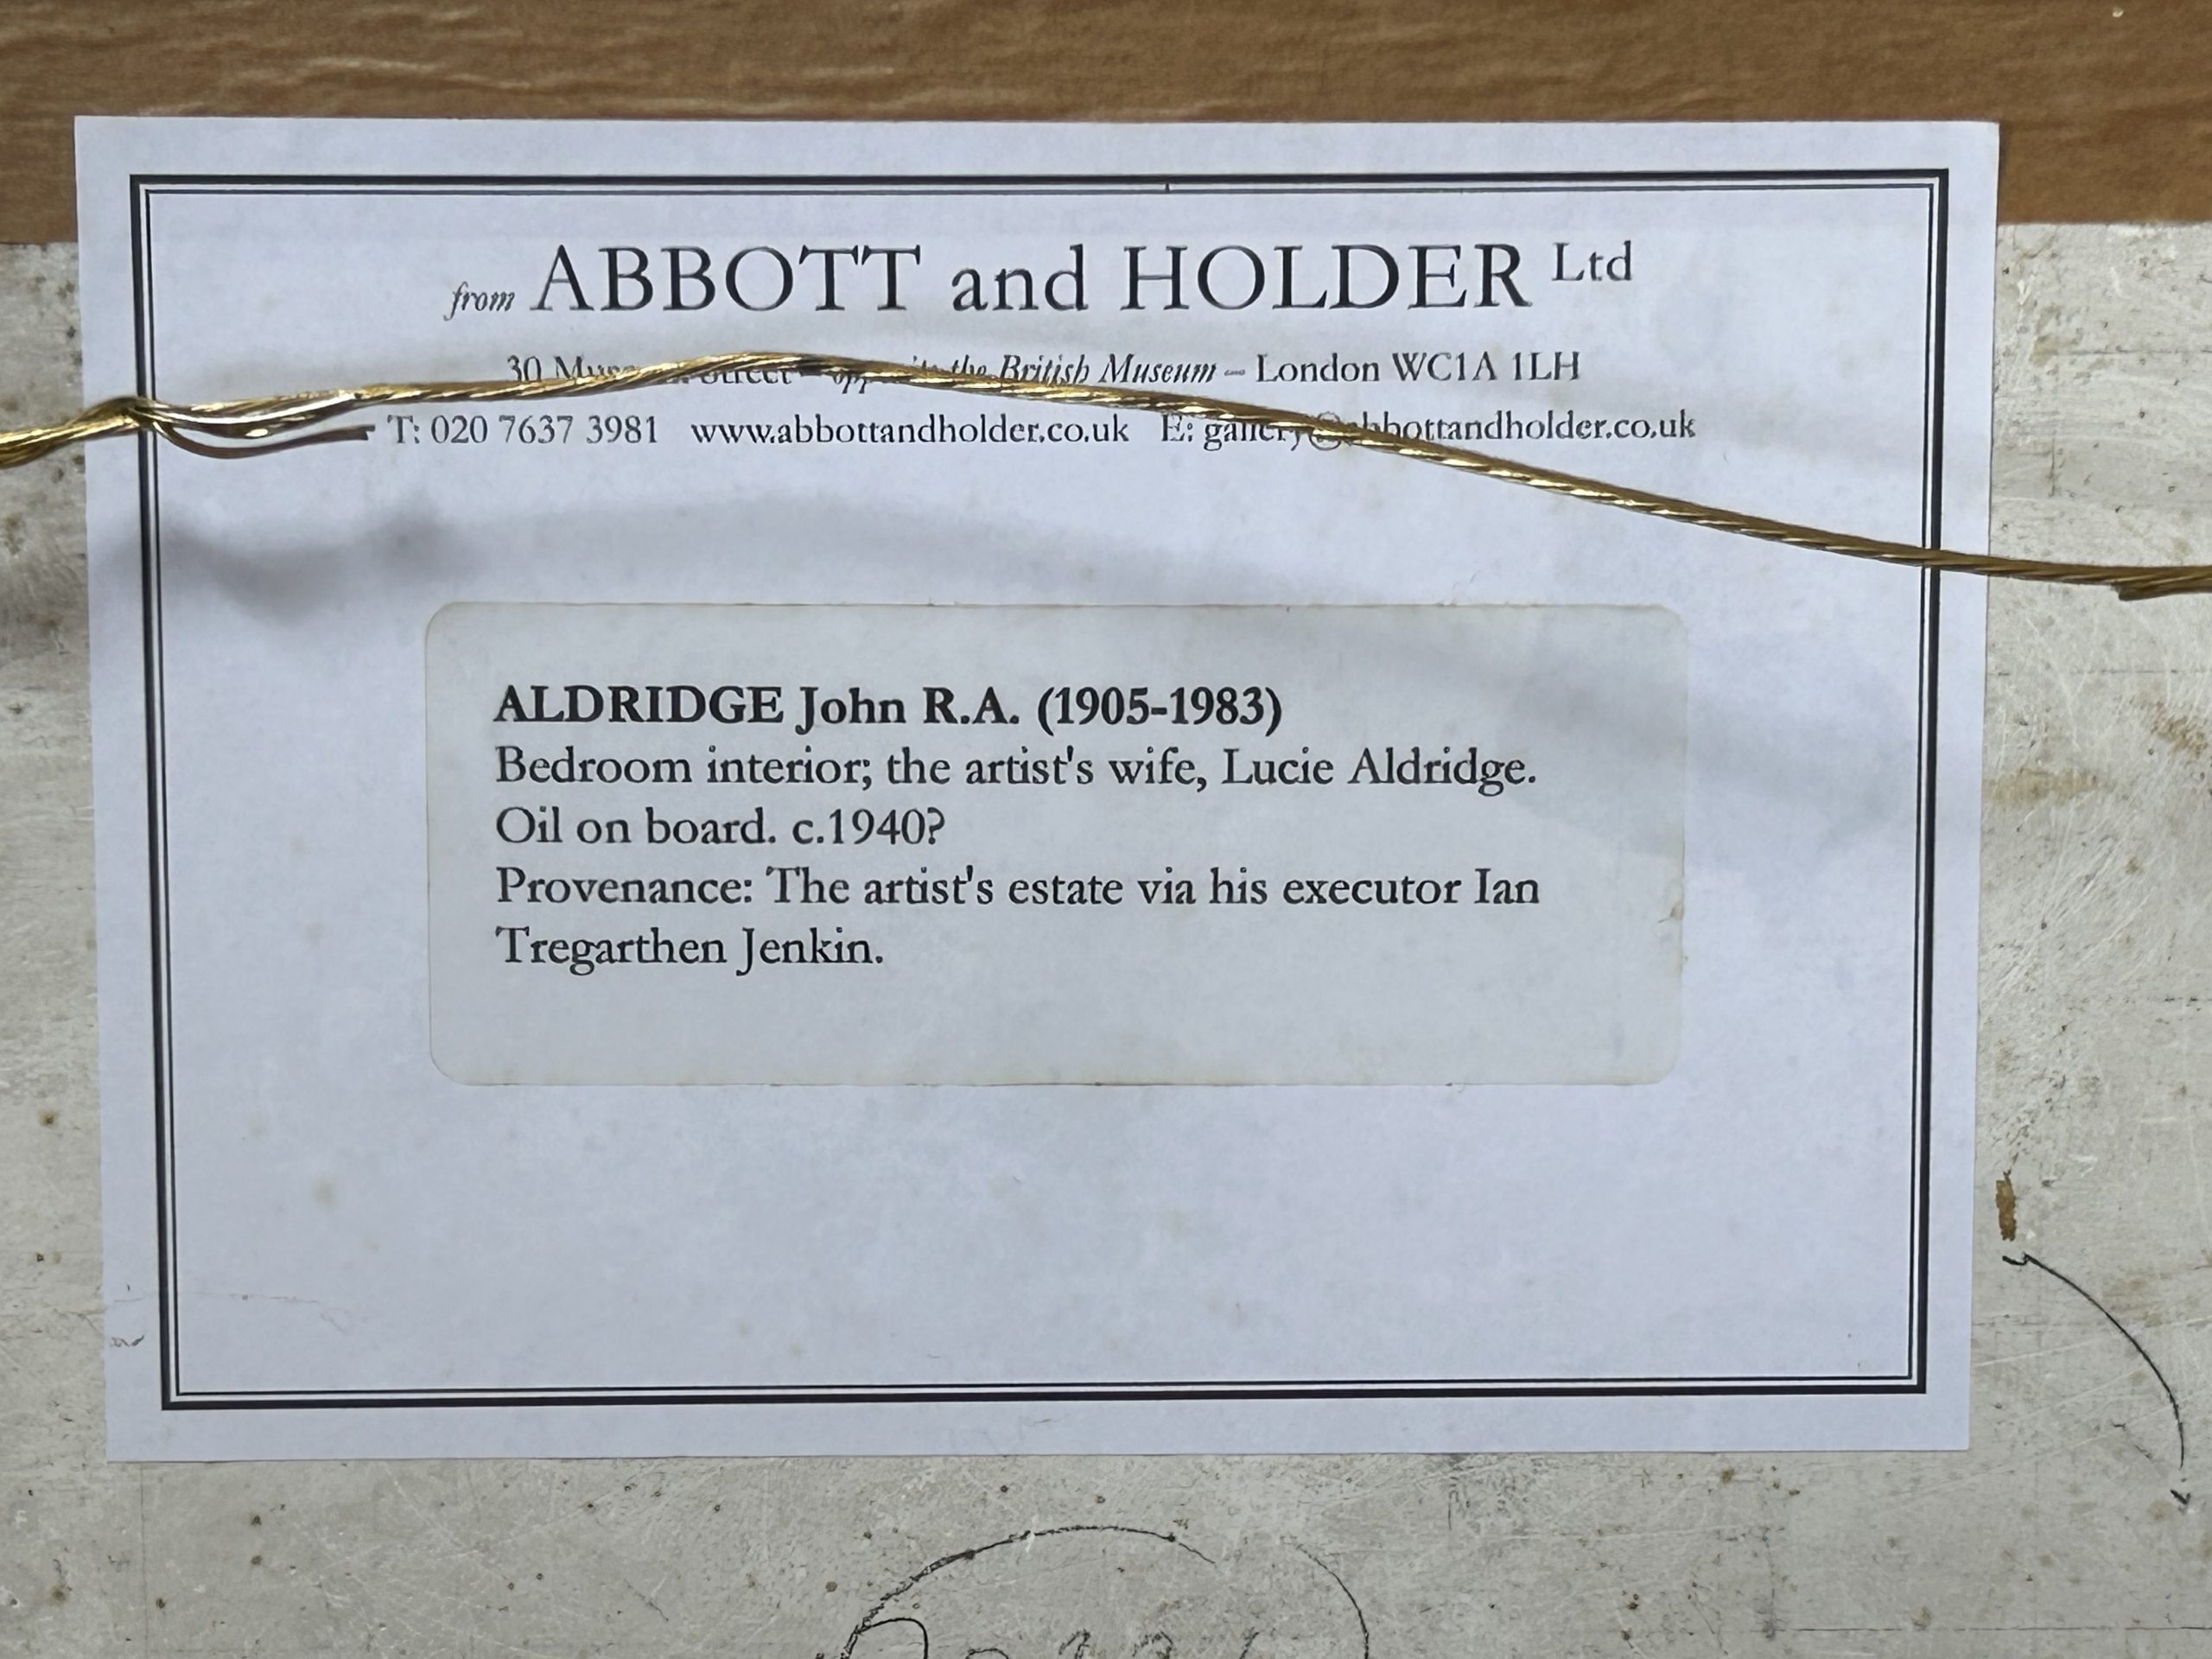 from ABBOTT and HOLDER Ltd
30 Museum Street – opposite the British Museum – London WC1A 1LH
T: 020 7637 3981 www.abbottandholder.co.uk E: gallery@abbottandholder.co.uk
ALDRIDGE John R.A. (1905-1983)
Bedroom interior; the artist's wife, Lucie Aldridge.
Oil on board. c.1940?
Provenance: The artist's estate via his executor Ian
Tregarthen Jenkin.